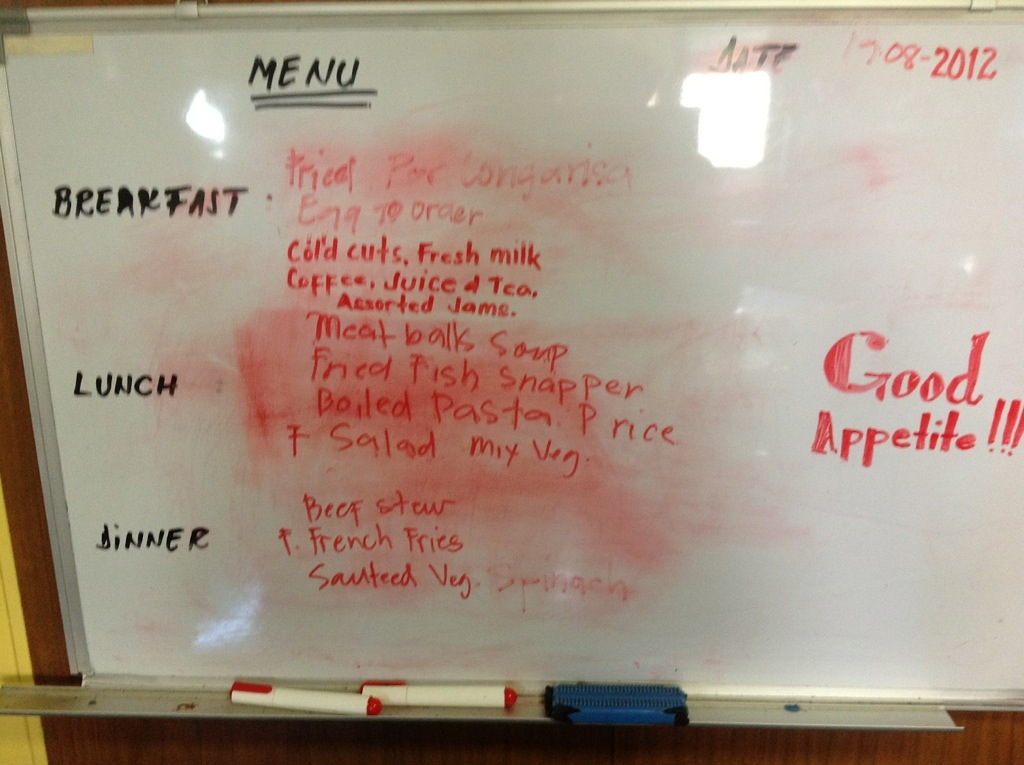 MENU
DATE 17-08-2012
BREAKFAST : Fried Por Longanisa
Egg To order
Cold cuts, Fresh milk
Coffee, Juice & Tea,
Assorted Jams.
Meat balls Soup
LUNCH : Fried Fish Snapper
Boiled Pasta. P rice
F Salad mix Veg.
Good
Appetite!!!
Beef stew
DINNER F. French Fries
Sauteed Veg. Spinach